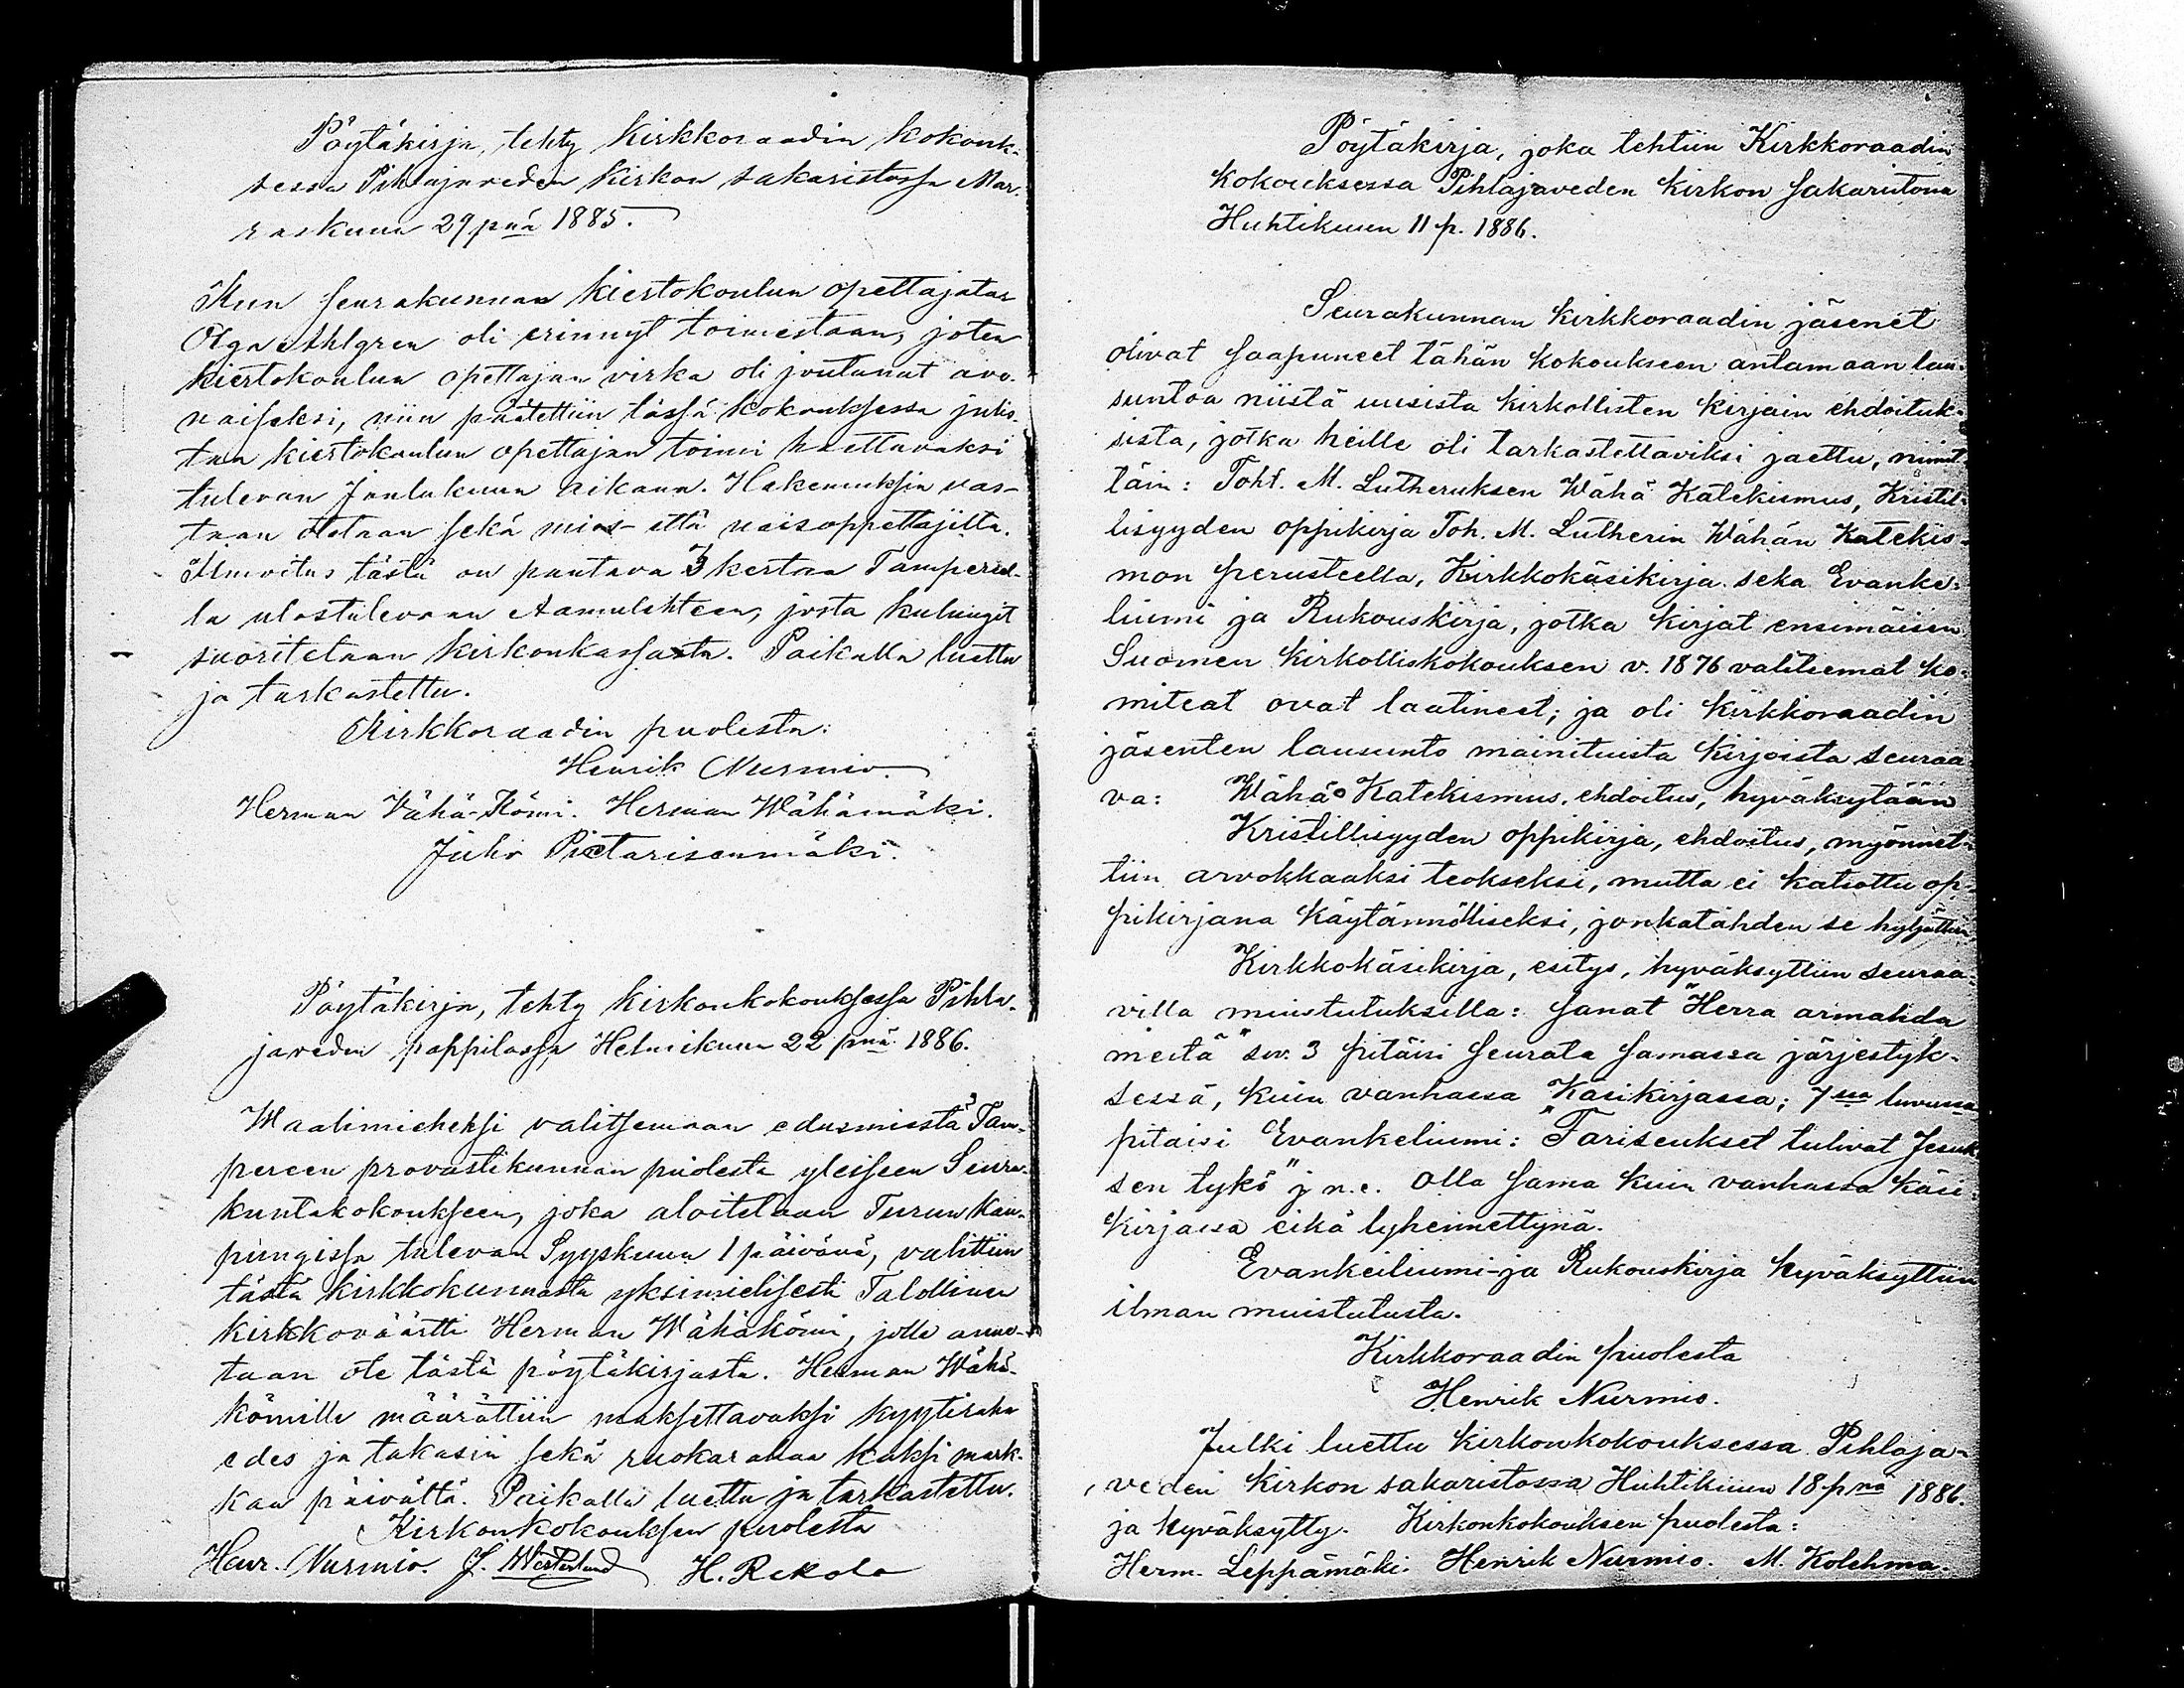 Pöytäkirja, tehty kirkkoraadin kokouk-
sessa Pihlajaveden kirkon sakaristossa Mar-
raskuun 29 pnä 1885.
Kun seurakunnan kiertokoulun opettajatar
Olga Ahlgren oli erinnyt toimestaan, joten
kiertokoulun opettajan virka oli joutunut avo-
naiseksi, niin päätettiin tässä kokouksessa julis-
taa kiertokoulun opettajan toimi haettavaksi
tulevan Joulukuun aikana. Hakemuksia vas-
taan otetaan sekä mies- että naisopettajilta.
Ilmoitus tästä on pantava 3 kertaa Tampereel-
la ulostulevaan Aamulehteen, josta kulungit
suoritetaan kirkonkassasta. Paikalla luettu
ja tarkastettu.
Kirkkoraadin puolesta:
Henrik Nurmio.
Herman Vähä-Kömi. Herman Wähämäki.
Juho Pietarisenmäki.
Pöytäkirja, tehty kirkonkokouksessa Pihla-
javeden pappilassa Helmikuun 22 pnä 1886.
Waalimieheksi valitsemaan edusmiestä Tam-
pereen provastikunnan puolesta yleiseen Seura-
kuntakokoukseen, joka aloitetaan Turun kau-
pungissa tulevan Syyskuun 1 päivänä, valittiin
tästä kirkkokunnasta yksimielisesti Talollinen
kirkkoväärtti Herman Wähäkömi, jolle anne-
taan ote tästä pöytäkirjasta. Herman Wähä-
kömille määrättiin maksettavaksi kyytiraha
edes ja takasin sekä ruokarahaa kaksi mark-
kaa päivältä. Paikalla luettu ja tarkastettu.
Kirkonkokouksen puolesta
Henr. Nurmio. J. Westerlund H. Rekola
Pöytäkirja, joka tehtiin Kirkkoraadin
kokouksessa Pihlajaveden kirkon sakaristona
Huhtikuun 11 p. 1886.
Seurakunnan kirkkoraadin jäsenet
olivat saapuneet tähän kokoukseen antamaan lau-
suntoa niistä uusista kirkollisten kirjain ehdoituk-
sista, jotka heille oli tarkastettaviksi jaettu, nimit-
täin: Toht. M. Lutheruksen Wähä Katekismus, Kristil-
lisyyden oppikirja Toh. M. Lutherin Wähän Katekis-
mon perusteella, Kirkkokäsikirja seka Evanke-
liumi ja Rukouskirja, jotka kirjat ensimäisen
Suomen kirkolliskokouksen v. 1876 valitsemat ko-
miteat ovat laatineet; ja oli kirkkoraadin
jäsenten lausunto mainituista kirjoista seuraa
va: Wähä Katekismus, ehdoitus, hyväksytään
Kristillisyyden oppikirja, ehdoitus, myönnet-
tiin arvokkaaksi teokseksi, mutta ei katsottu op-
pikirjana käytännölliseksi, jonkatähden se hyljättiin
Kirkkokäsikirja, esitys, hyväksyttiin seuraa-
villa muistutuksilla: sanat "Herra armahda
meitä" siv. 3 pitäisi seurata samassa järjestyk-
sessä, kuin vanhassa Käsikirjassa; 7ssa luvussa
pitaisi Evankeliumi: "Fariseukset tulivat Jesuk-
sen tykö" j n. e. olla sama kuin vanhassa käsi-
kirjassa eikä lyhennettynä.
Evankeiliumi-ja Rukouskirja hyväksyttiin
ilman muistutusta.
Kirkkoraadin puolesta
Henrik Nurmio.
Julki luettu kirkonkokouksessa Pihlaja-
veden kirkon sakaristossa Huhtikuun 18 pnä 1886.
ja hyväksytty. Kirkonkokouksen puolesta:
Herm. Leppämäki. Henrik Nurmio. M. Kolehma-